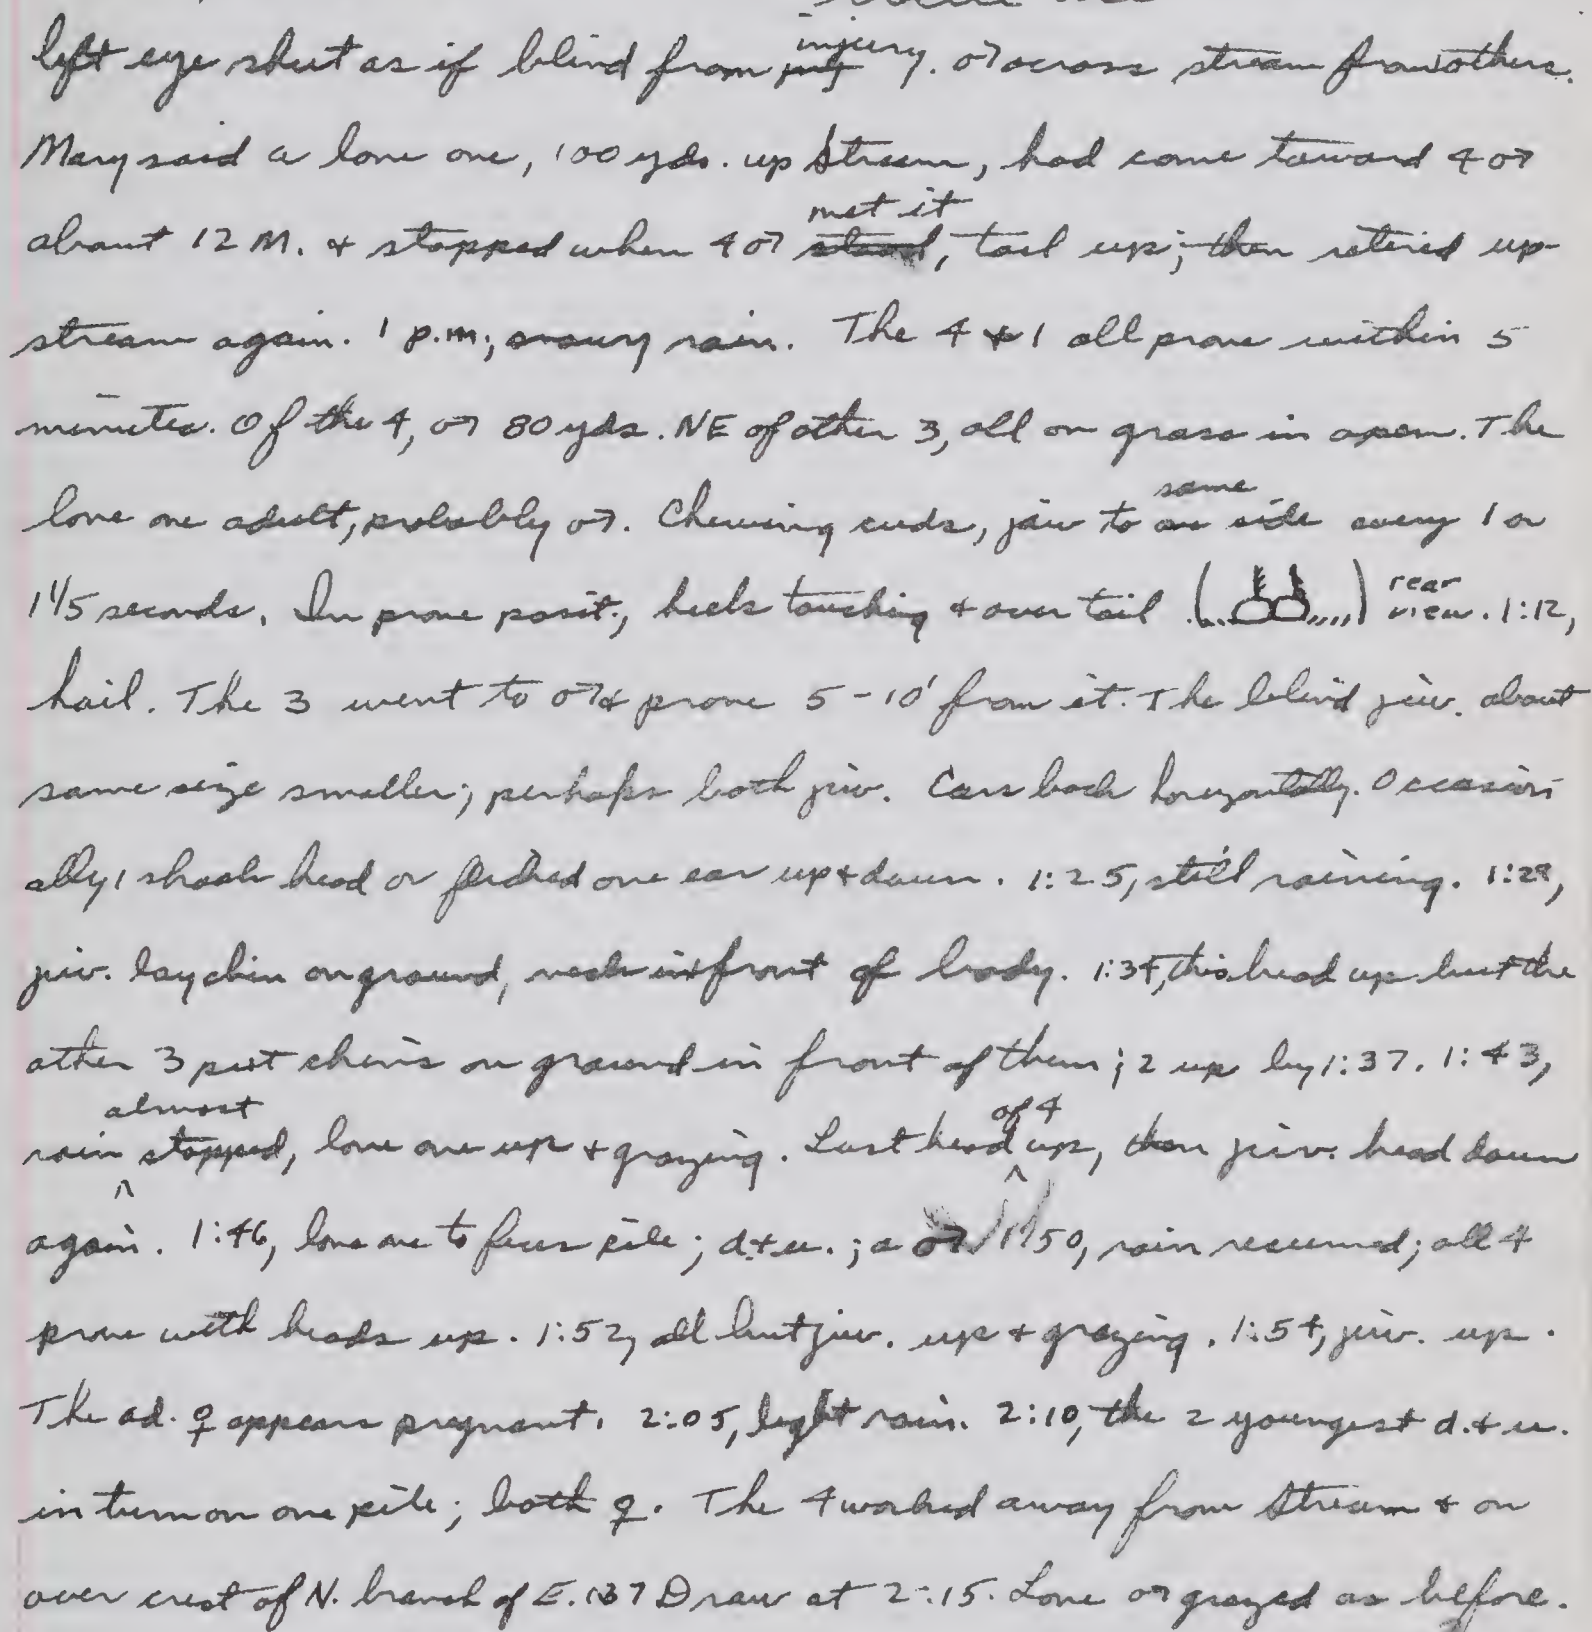 left eye shut as if blind from injury. ♂ across stream from others.
Mary said a lone one, 100 yds. up stream, had come toward 4 ♂
about 12 M. & stopped when 4 ♂ met it, tail up; then retired up-
stream again. 1 p.m., rain. The 4 & 1 all prone within 5
minutes. Of the 4, ♂ 80 yds. NE of other 3, all on grass in open. The
lone one adult, probably ♂. Chewing cuds, jaw to same side every 1 or
1 1/5 seconds. In prone posit., heels touching & over tail rear view. 1:12,
hail. The 3 went to ♂ & prone 5-10' from it. The blind juv. about
same size smaller; perhaps both juv. Ears back horizontally. Occasion-
ally 1 shook head or flicked one ear up & down. 1:25, still raining. 1:29,
juv. lay chin on ground, neck in front of body. 1:34, this head up but the
other 3 put chins on ground in front of them; 2 up by 1:37. 1:43,
rain almost stopped, lone one up & grazing. Last head of 4 up, then juv. head down
again. 1:46, lone one to feces pile; d. & u.; a ♂ 1:50, rain resumed; all 4
prone with heads up. 1:52, all but juv. up & grazing. 1:54, juv. up.
The ad. ♀ appears pregnant. 2:05, light rain. 2:10, the 2 youngest d. & u.
in turn on one pile; both ♀. The 4 worked away from stream & on
over crest of N. branch of E. 137 Draw at 2:15. Lone ♂ grazed as before.